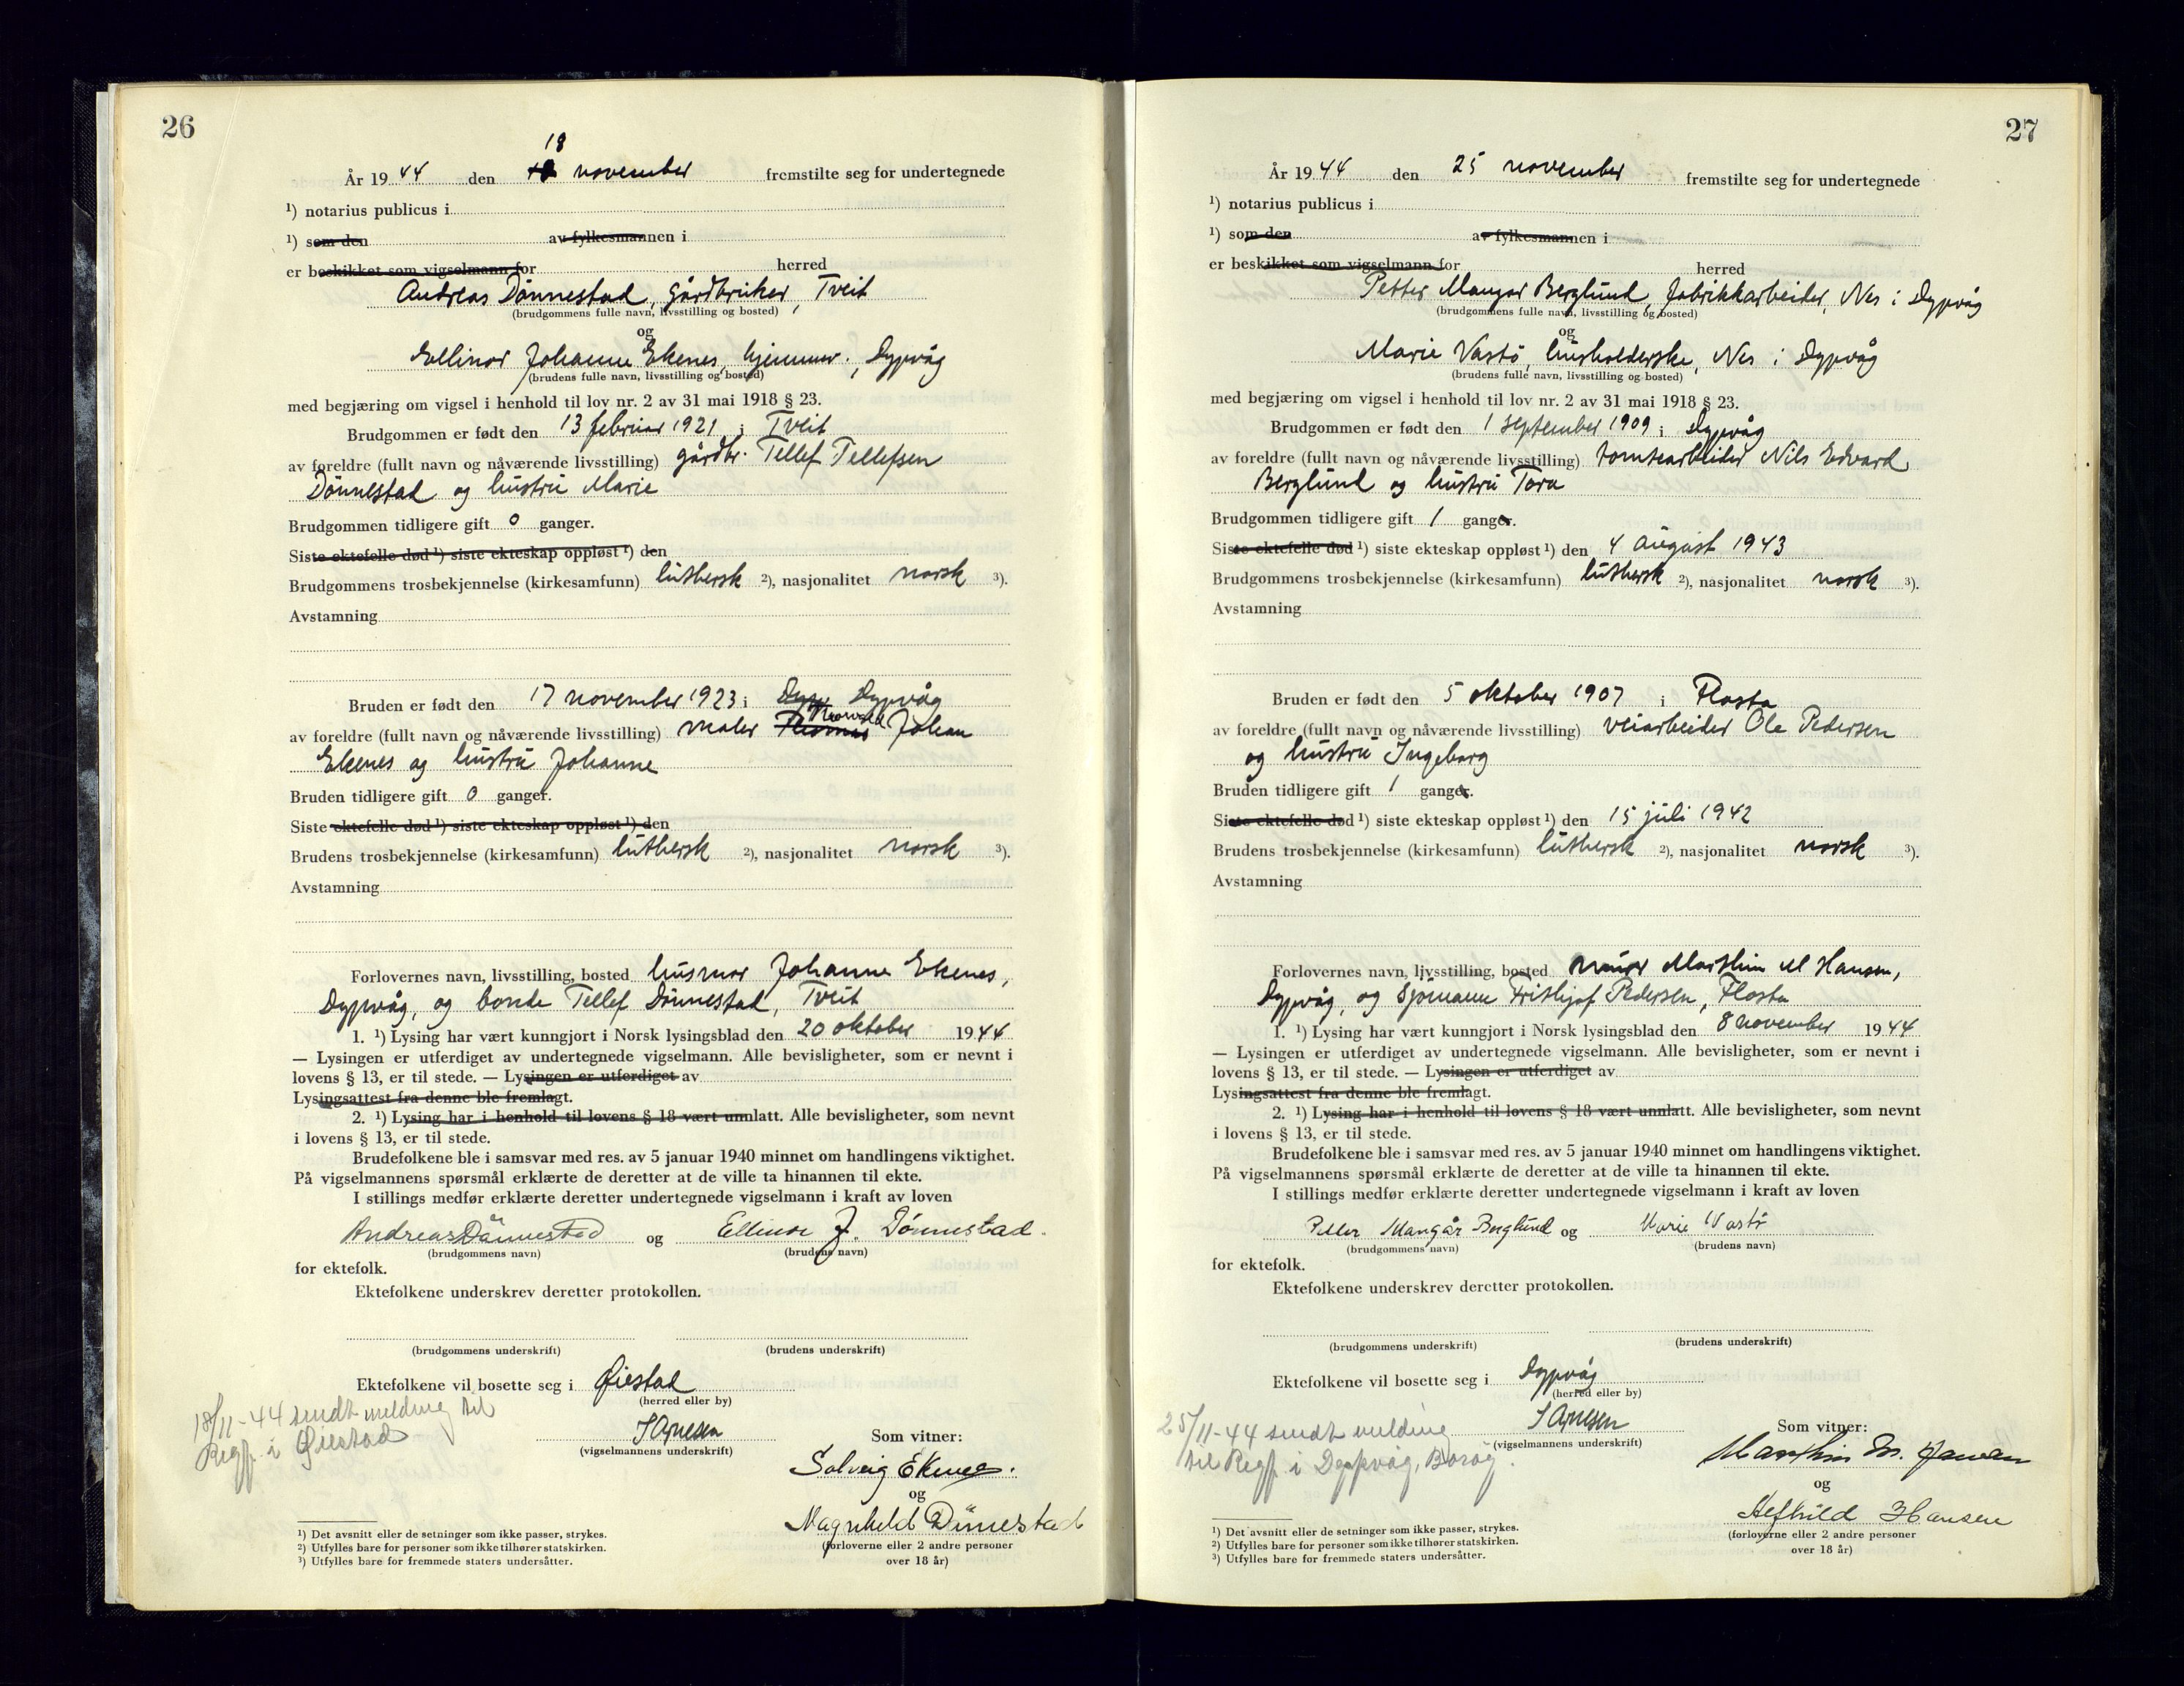 26
18
År 1944 den 18 november fremstilte seg for undertegnede
1) notarius publicus i
1) som den av fylkesmannen i
er beskikket som vigselmann for herred
Andreas Dönnestad, gårdbruker, Tveit
(brudgommens fulle navn, livsstilling og bosted)
og
Ellinor Johanne Ekenes, hjemmev., Dypvåg
(brudens fulle navn, livsstilling og bosted)
med begjæring om vigsel i henhold til lov nr. 2 av 31 mai 1918 § 23.
Brudgommen er født den 13 februar 1921 i Tveit
av foreldre (fullt navn og nåværende livsstilling) gårdbr. Tellef Tellefsen
Dönnestad og hustru Marie
Brudgommen tidligere gift 0 ganger.
Siste ektefelle død 1) siste ekteskap oppløst 1) den
Brudgommens trosbekjennelse (kirkesamfunn) luthersk 2), nasjonalitet norsk 3).
Avstamning
Bruden er født den 17 november 1923 i Dypv Dypvåg
av foreldre (fullt navn og nåværende livsstilling) maler Thomas Johan
Ekenes og hustru Johanne
Bruden tidligere gift 0 ganger.
Siste ektefelle død 1) siste ekteskap oppløst 1) den
Brudens trosbekjennelse (kirkesamfunn) luthersk 2), nasjonalitet norsk 3).
Avstamning
Forlovernes navn, livsstilling, bosted husmor Johanne Ekenes,
Dypvåg, og bonde Tellef Dönnestad, Tveit
1. 1) Lysing har vært kunngjort i Norsk lysingsblad den 20 oktober 1944
— Lysingen er utferdiget av undertegnede vigselmann. Alle bevisligheter, som er nevnt i
lovens § 13, er til stede. — Lysingen er utferdiget av
Lysingsattest fra denne ble fremlagt.
2. 1) Lysing har i henhold til lovens § 18 vært unnlatt. Alle bevisligheter, som nevnt
i lovens § 13, er til stede.
Brudefolkene ble i samsvar med res. av 5 januar 1940 minnet om handlingens viktighet.
På vigselmannens spørsmål erklærte de deretter at de ville ta hinannen til ekte.
I stillings medfør erklærte deretter undertegnede vigselmann i kraft av loven
Andreas Dönnestad og Ellinor J. Dönnestad.
(brudgommens navn) (brudens navn)
for ektefolk.
Ektefolkene underskrev deretter protokollen.
(brudgommens underskrift) (brudens underskrift)
Ektefolkene vil bosette seg i Øiestad
(herred eller by)
18/11-44 sendt melding til
Regf. i Øiestad
(vigselmannens underskrift)
Som vitner:
Solveig Ekenes.
og
Magnhild Dönnestad
(forloverne eller 2 andre personer
over 18 år)
1) Det avsnitt eller de setninger som ikke passer, strykes.
2) Utfylles bare for personer som ikke tilhører statskirken.
3) Utfylles bare for fremmede staters undersåtter.
27
År 1944 den 25 november fremstilte seg for undertegnede
1) notarius publicus i
1) som den av fylkesmannen i
er beskikket som vigselmann for herred
Petter Mangor Berglund, fabrikkarbeider, Nes i Dypvåg
(brudgommens fulle navn, livsstilling og bosted)
og
Marie Vastö, husholderske, Nes i Dypvåg
(brudens fulle navn, livsstilling og bosted)
med begjæring om vigsel i henhold til lov nr. 2 av 31 mai 1918 § 23.
Brudgommen er født den 1 september 1909 i Dypvåg
av foreldre (fullt navn og nåværende livsstilling) tomtearbeider Nils Edvard
Berglund og hustru Tora
Brudgommen tidligere gift 1 ganger.
Siste ektefelle død 1) siste ekteskap oppløst 1) den 4 august 1943
Brudgommens trosbekjennelse (kirkesamfunn) luthersk 2), nasjonalitet norsk 3).
Avstamning
Bruden er født den 5 oktober 1907 i Flosta
av foreldre (fullt navn og nåværende livsstilling) veiarbeider Ole Pedersen
og hustru Ingeborg
Bruden tidligere gift 1 ganger.
Siste ektefelle død 1) siste ekteskap oppløst 1) den 15 juli 1942
Brudens trosbekjennelse (kirkesamfunn) luthersk 2), nasjonalitet norsk 3).
Avstamning
Forlovernes navn, livsstilling, bosted murer Marthin M Hansen,
Dypvåg, og sjömann Frithjof Pedersen, Flosta
1. 1) Lysing har vært kunngjort i Norsk lysingsblad den 8 november 1944
— Lysingen er utferdiget av undertegnede vigselmann. Alle bevisligheter, som er nevnt i
lovens § 13, er til stede. — Lysingen er utferdiget av
Lysingsattest fra denne ble fremlagt.
2. 1) Lysing har i henhold til lovens § 18 vært unnlatt. Alle bevisligheter, som nevnt
i lovens § 13, er til stede.
Brudefolkene ble i samsvar med res. av 5 januar 1940 minnet om handlingens viktighet.
På vigselmannens spørsmål erklærte de deretter at de ville ta hinannen til ekte.
I stillings medfør erklærte deretter undertegnede vigselmann i kraft av loven
Petter Mangår Berglund og Marie Vastö
(brudgommens navn) (brudens navn)
for ektefolk.
Ektefolkene underskrev deretter protokollen.
(brudgommens underskrift) (brudens underskrift)
Ektefolkene vil bosette seg i Dypvåg
(herred eller by)
25/11-44 sendt melding
til Regf. i Dypvåg, Borøy.
(vigselmannens underskrift)
Som vitner:
Marthin M. Hansen
og
Alfhild Hansen
(forloverne eller 2 andre personer
over 18 år)
1) Det avsnitt eller de setninger som ikke passer, strykes.
2) Utfylles bare for personer som ikke tilhører statskirken.
3) Utfylles bare for fremmede staters undersåtter.